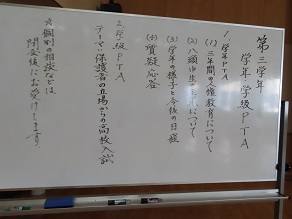 第三学年
学年・学級PTA
1. 学年PTA
(1) 三年間の人権教育について
(2) 八頭中生の
について
(3) 学年の様子と今後の日程
(4) 質疑応答
2. 学級PTA
テーマ：保護者の立場からの高校入試
※個別の相談などは
閉会後にお受けします。